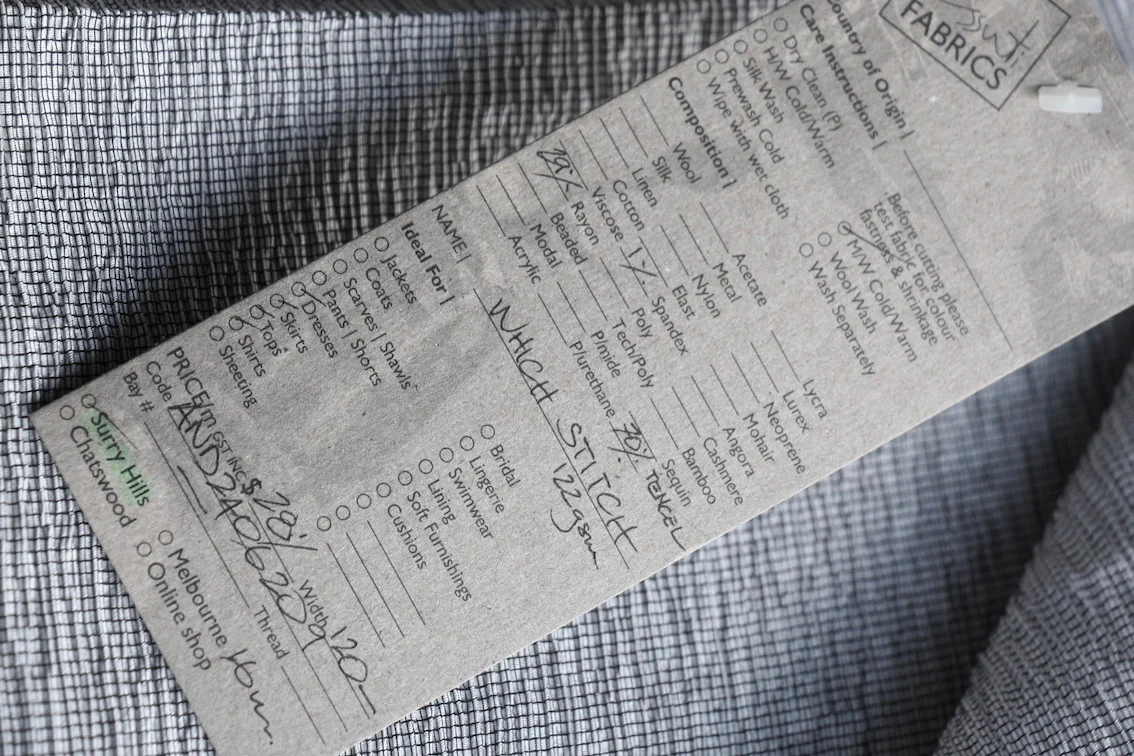 ssuti
FABRICS
ountry of Origin |
Care Instructions |
Before cutting please
test fabric for colour
fastness & shrinkage
Dry Clean (P)
M/W Cold/Warm
H/W Cold/Warm
Wool Wash
Silk Wash
Wash Separately
Prewash Cold
Wipe with wet cloth
Composition |
Wool Acetate Lycra
Silk Metal Lurex
Linen Nylon Neoprene
Cotton Elast Mohair
Viscose 1% Spandex Angora
29% Rayon Poly Cashmere
Beaded Tech/Poly Bamboo
Modal P/imide Sequin
Acrylic P/urethane 70% TENCEL
NAME | WHICH STITCH
122gsm
Ideal For |
Jackets Bridal
Coats Lingerie
Scarves | Shawls Swimwear
Pants | Shorts Lining
Dresses Soft Furnishings
Skirts Cushions
Tops
Shirts
Sheeting
PRICE/m GST INC $28./ Width 120-
Code AND2406209
Bay # Thread
Surry Hills Melbourne 16m.
Chatswood Online shop